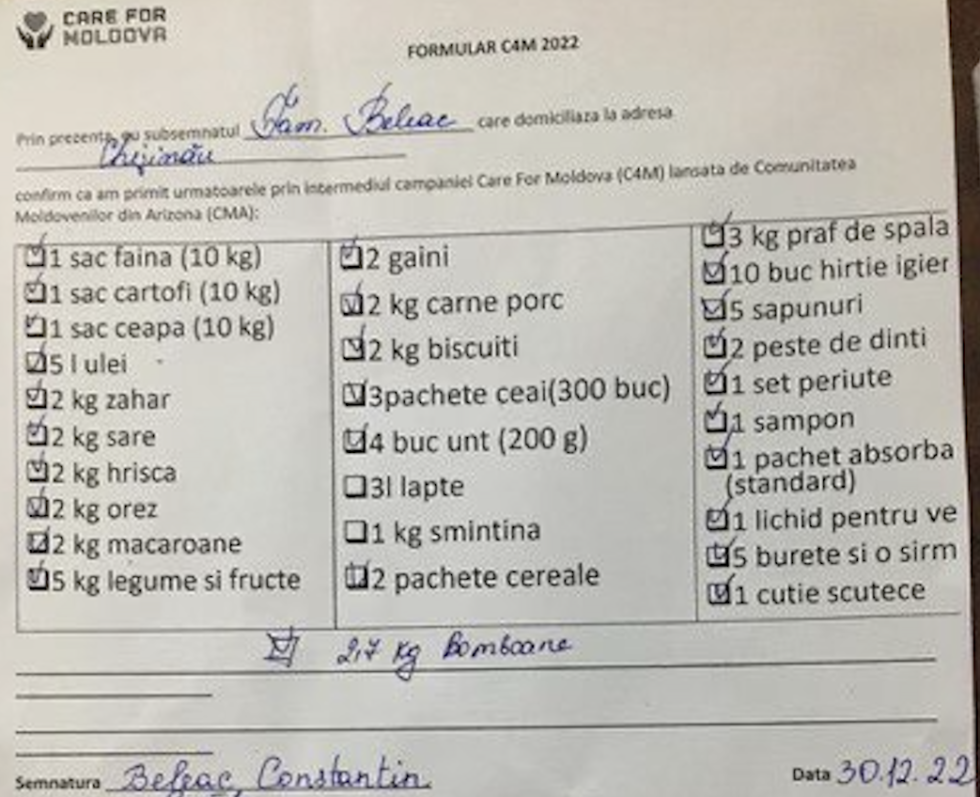 CARE FOR
MOLDOVA
FORMULAR C4M 2022
Prin prezenta, eu subsemnatul Fam. Beleac care domiciliaza la adresa
Chișinău
confirm ca am primit urmatoarele prin intermediul campaniei Care For Moldova (C4M) lansata de Comunitatea
Moldovenilor din Arizona (CMA):
1 sac faina (10 kg)
1 sac cartofi (10 kg)
1 sac ceapa (10 kg)
5 l ulei
2 kg zahar
2 kg sare
2 kg hrisca
2 kg orez
2 kg macaroane
5 kg legume si fructe
2 gaini
2 kg carne porc
2 kg biscuiti
3pachete ceai(300 buc)
4 buc unt (200 g)
3l lapte
1 kg smintina
2 pachete cereale
3 kg praf de spala
10 buc hirtie igier
5 sapunuri
2 peste de dinti
1 set periute
1 sampon
1 pachet absorba
(standard)
1 lichid pentru ve
5 burete si o sirm
1 cutie scutece
2,7 kg Bomboane
Semnatura Beleac Constantin
Data 30.12.22